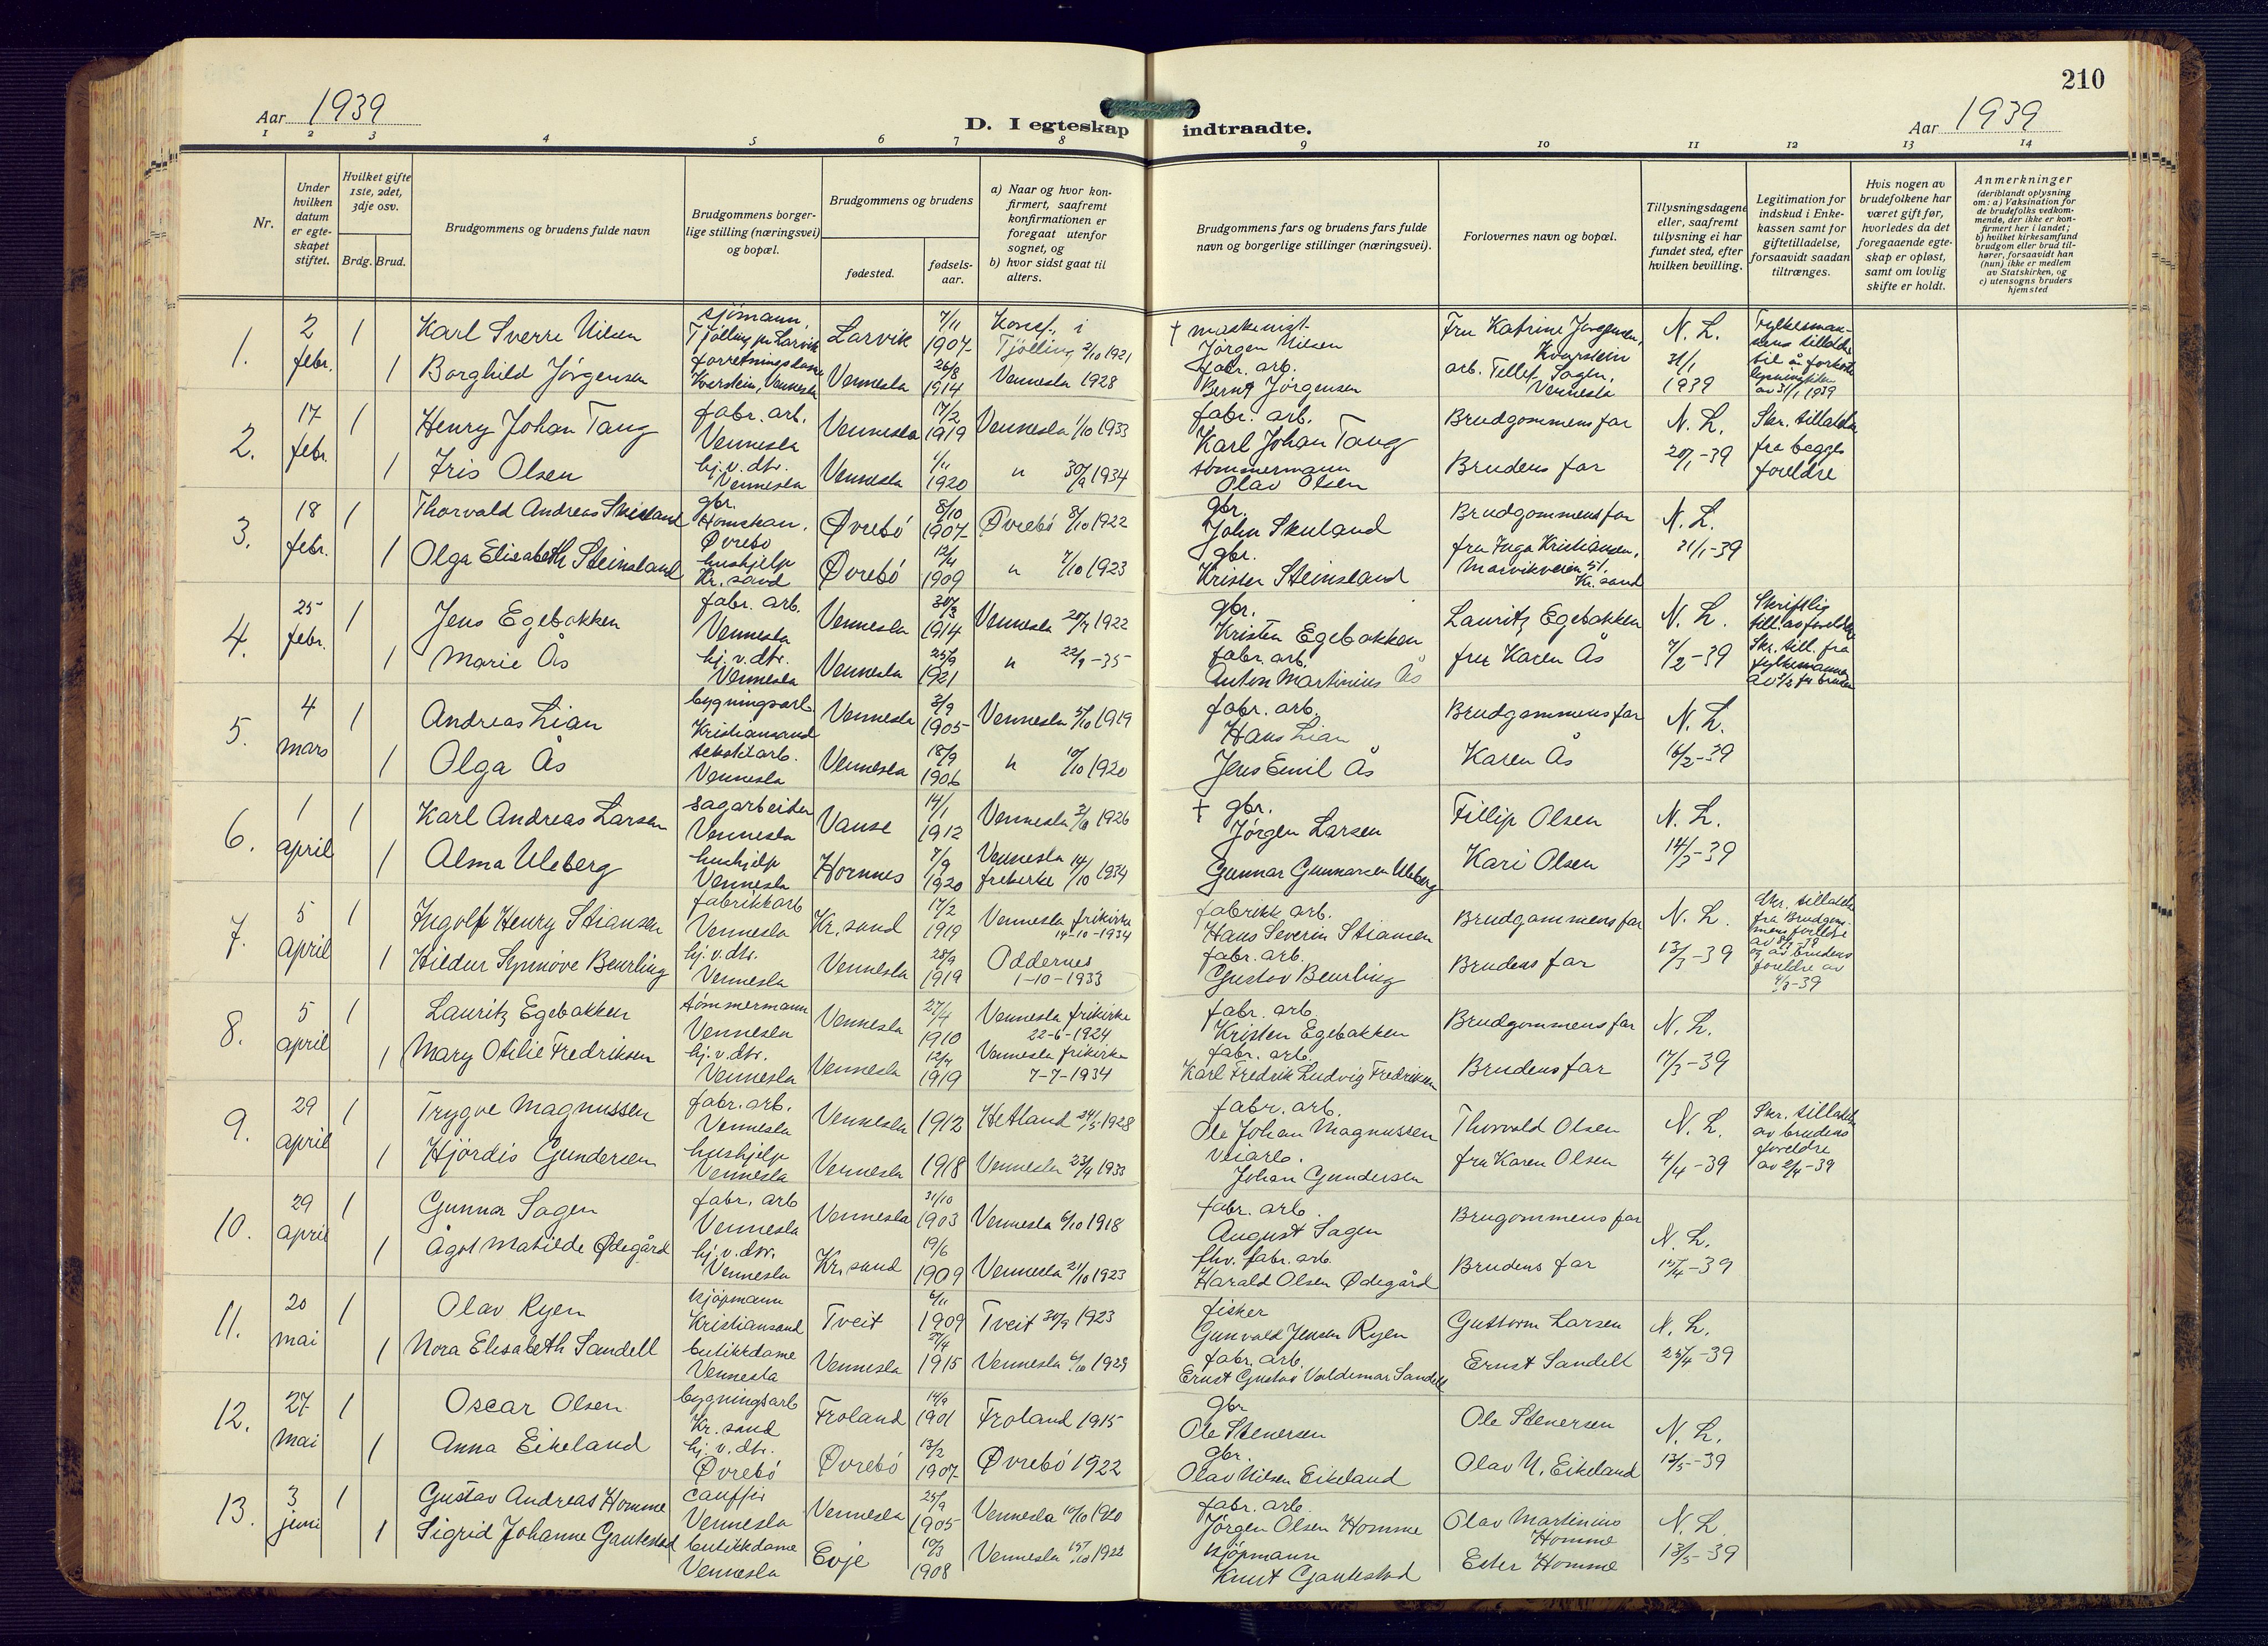 210
Aar 1939
D. I egteskap indtraadte.
Aar 1939
1 2 3 4 5 6 7 8 9 10 11 12 13 14
Nr.
Under hvilken datum er egteskapet stiftet.
Hvilket gifte 1ste, 2det, 3dje osv.
Brdg. Brud.
Brudgommens og brudens fulde navn
Brudgommens borgerlige stilling (næringsvei) og bopæl.
Brudgommens og brudens
fødested.
fødselsaar.
a) Naar og hvor konfirmert, saafremt konfirmationen er foregaat utenfor sognet, og
b) hvor sidst gaat til alters.
Brudgommens fars og brudens fars fulde navn og borgerlige stillinger (næringsvei).
Forlovernes navn og bopæl.
Tillysningsdagene eller, saafremt tillysning ei har fundet sted, efter hvilken bevilling.
Legitimation for indskud i Enkekassen samt for giftetilladelse, forsaavidt saadan tiltrænges.
Hvis nogen av brudefolkene har været gift før, hvorledes da det foregaaende egteskap er opløst, samt om lovlig skifte er holdt.
Anmerkninger
(deriblandt oplysning om: a) Vaksination for de brudefolks vedkommende, der ikke er konfirmert her i landet; b) hvilket kirkesamfund brudgom eller brud tilhører, forsaavidt han (hun) ikke er medlem av Statskirken, og c) utensogns bruders hjemsted
1. 2 febr. 1 Karl Sverre Nilsen sjømann, Tjølling pr Larvik Larvik 7/11 1907 Konf. i Tjølling 2/10 1921 † maskinist Jørgen Nilsen Fru Katrine Jørgensen, Kvarstein N. L. 31/1 1939 Fylkesmannens tillatelse til å forkorte lysningstiden av 31/1 1939
1 Borghild Jørgensen forretningsdame Kvarstein, Vennesla Vennesla 26/8 1914 Vennesla 1928 fabr. arb. Bernt Jørgensen arb. Tellef Sagen, Vennesla
2. 17 febr. 1 Henry Johan Tang fabr. arb. Vennesla Vennesla 17/2 1919 Vennesla 1/10 1933 fabr. arb. Karl Johan Tang Brudgommens far N. L. 20/1-39 Skr. tillatelse fra begges foreldre
1 Iris Olsen hj. v. dtr. Vennesla Vennesla 1/11 1920 " 30/9 1934 tømmermann Olav Olsen Brudens far
3. 18 febr. 1 Thorvald Andreas Skuland gbr. Homskar, Øvrebø Øvrebø 8/10 1907 Øvrebø 8/10 1922 gbr. John Skuland Brudgommens far N. L. 21/1-39
1 Olga Elisabeth Steinsland hushjelp Kr. sand Øvrebø 12/4 1909 " 7/10 1923 gbr. Krister Steinsland fru Inga Kristiansen, Marvikveien 51. Kr. sand
4. 25 febr. 1 Jens Egebakken fabr. arb. Vennesla Vennesla 30/3 1914 Vennesla 1922 gbr. Kristen Egebakken Lauritz Egebakken N. L. 7/2-39 Skriftlig till. av foreldre Skr. till. fra fylkesmannen
1 Marie Ås hj. v. dtr. Vennesla Vennesla 25/9 1921 " 22/9-35 fabr. arb. Anton Martinius Ås fru Karen Ås
5. 4 mars 1 Andreas Lian bygningsarb. Kristiansand Vennesla 2/9 1905 Vennesla 5/10 1919 fabr. arb. Hans Lian Brudgommens far N. L. 16/2-39
1 Olga Ås Vennesla Vennesla 18/9 1906 " 10/10 1920 Jens Emil Ås Karen Ås
6. 1 april 1 Karl Andreas Larsen sagarbeider Vennesla Vanse 14/1 1912 Vennesla 3/10 1926 † gbr. Jørgen Larsen Fillip Olsen N. L. 14/3-39
1 Alma Uleberg hushjelp Vennesla Hornnes 7/9 1920 Vennesla frikirke 14/10 1934 Gunnar Gunnarsen Uleberg Kari Olsen
7. 5 april 1 Ingolf Henry Stiansen fabrikkarb Vennesla Kr. sand 17/2 1919 Vennesla frikirke 14-10-1934 fabrikk arb. Hans Severin Stiansen Brudgommens far N. L. 13/3-39 Skr. tillatelse fra Brudgommens foreldre av 8/3-39 og av brudens foreldre av 4/3-39
1 Hildur Synnøve Beurling hj. v. dtr. Vennesla Vennesla 28/9 1919 Oddernes 1-10-1933 fabr. arb. Gustav Beurling Brudens far
8. 5 april 1 Lauritz Egebakken tømmermann Vennesla Vennesla 27/4 1910 Vennesla frikirke 22-6-1924 fabr. arb. Kristen Egebakken Brudgommens far N. L. 17/3-39
1 Mary Otilie Fredriksen hj. v. dtr. Vennesla Vennesla 12/4 1919 Vennesla frikirke 7-7-1934 fabr. arb. Karl Fredrik Ludvig Fredriksen Brudens far
9. 29 april 1 Trygve Magnussen fabr. arb. Vennesla Vennesla 1912 Hetland 24/5 1928 fabr. arb. Ole Johan Magnussen Thorvald Olsen N. L. 4/4-39 Skr. tillatelse av brudens foreldre av 2/4-39
1 Hjördis Gundersen hushjelp Vennesla Vennesla 1918 Vennesla 23/4 1933 veiarb. Johan Gundersen fru Karen Olsen
10. 29 april 1 Gunnar Sagen fabr. arb Vennesla Vennesla 31/10 1903 Vennesla 6/10 1918 fabr. arb. August Sagen Brugommens far N. L. 15/4-39
1 Ågot Matilde Ødegård hj. v. dtr. Vennesla Kr. sand 19/6 1909 Vennesla 21/10 1923 fhv. fabr. arb. Harald Olsen Ødegård Brudens far
11. 20 mai 1 Olav Ryen kjøpmann Kristiansand Tveit 6/11 1909 Tveit 30/9 1923 fisker Gunvald Jensen Ryen Guttorm Larsen N. L. 25/4-39
1 Nora Elisabeth Sandell butikkdame Vennesla Vennesla 27/4 1915 Vennesla 6/10 1929 fabr. arb. Ernst Gustav Valdemar Sandell Ernst Sandell
12. 27 mai 1 Oscar Olsen bygningsarb Kr. sand Froland 14/9 1901 Froland 1915 gbr Ole Stenersen Ole Stenersen N. L. 13/5-39
1 Anna Eikeland hj. v. dtr. Øvrebø Øvrebø 13/2 1907 Øvrebø 1922 gbr. Olav Nilsen Eikeland Olav N. Eikeland
13. 3 juni 1 Gustav Andreas Homme Vennesla Vennesla 25/9 1905 Vennesla 10/10 1920 fabr. arb. Jørgen Olsen Homme Olav Martinius Homme N. L. 13/5-39
1 Sigrid Johanne Gautestad butikkdame Vennesla Evje 10/3 1908 Vennesla 15/10 1922 kjøpmann Knut Gautestad Ester Homme